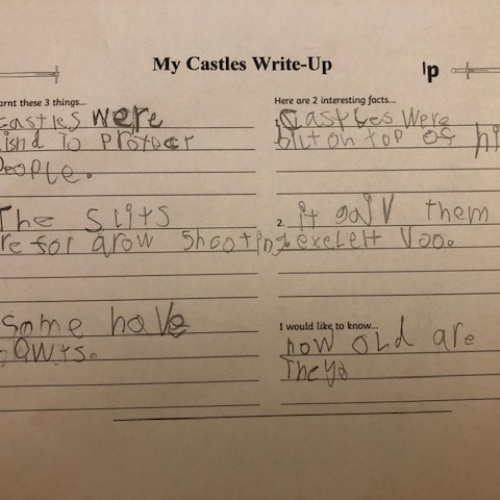 My Castles Write-Up
arnt these 3 things...
castles were
to protect
people.
The slits
re for arow shooting
some have
Here are 2 interesting facts...
1. Castles were
bilt on top of hi
2. it gaiv them
exelelt voo.
I would like to know...
how old are
they